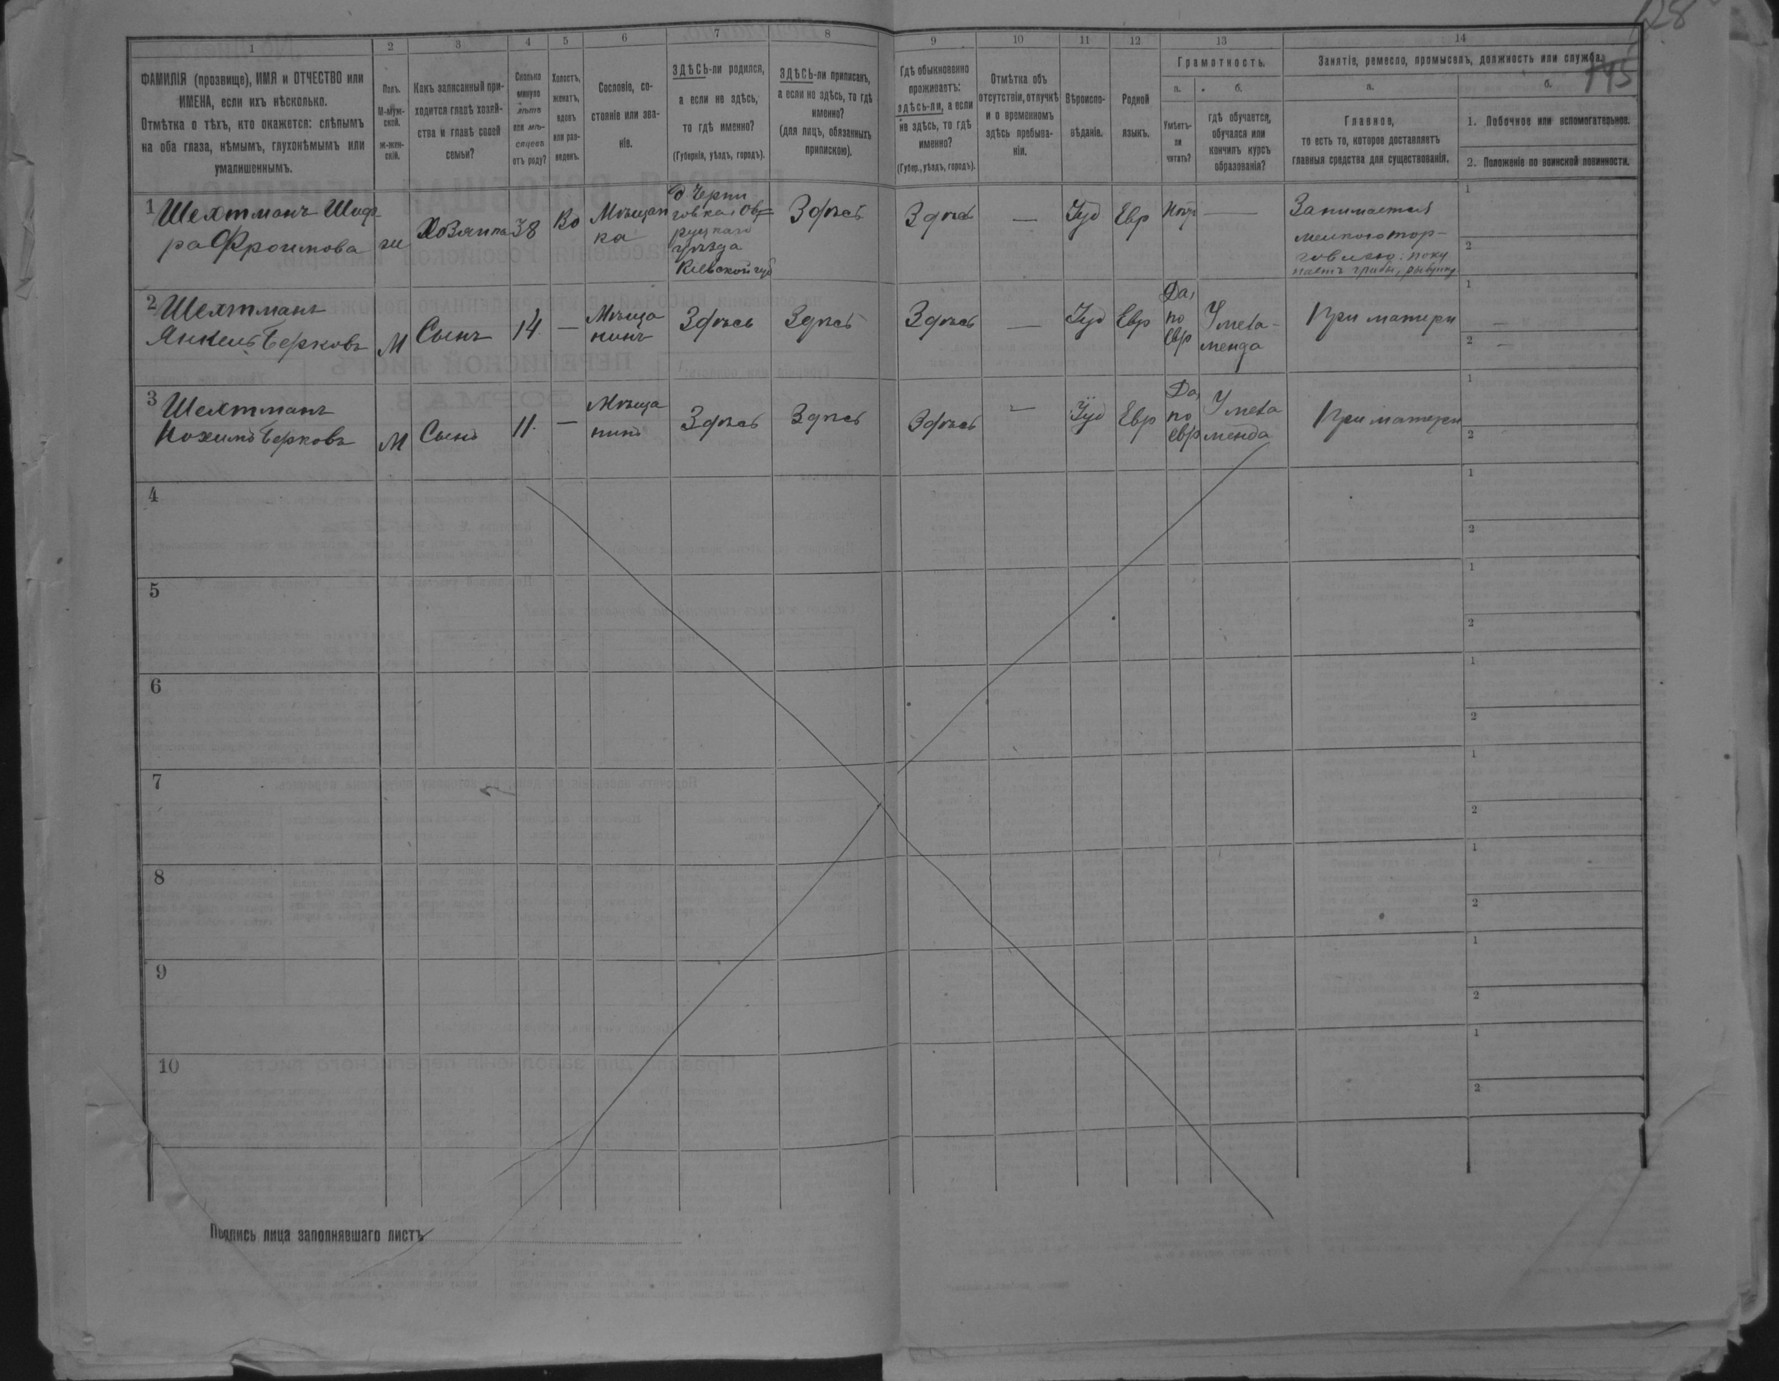 128
145
1
2
3
4
5
6
7
8
9
10
11
12
13
14
ФАМИЛІЯ (прозвище), ИМЯ и ОТЧЕСТВО или
ИМЕНА, если ихъ нѣсколько.
Отмѣтка о тѣхъ, кто окажется: слѣпымъ
на оба глаза, нѣмымъ, глухонѣмымъ или
умалишеннымъ.
Полъ.
М-муж-
ской.
ж-жен-
скій.
Какъ записанный при-
ходится главѣ хозяй-
ства и главѣ своей
семьи?
Сколько
минуло
лѣтъ
или мѣ-
сяцевъ
отъ роду?
Холостъ,
женатъ,
вдовъ
или раз-
веденъ.
Сословіе, со-
стояніе или зва-
ніе.
ЗДѢСЬ-ли родился,
а если не здѣсь,
то гдѣ именно?
(Губернія, уѣздъ, городъ).
ЗДѢСЬ-ли приписанъ,
а если не здѣсь, то гдѣ
именно?
(для лицъ, обязанныхъ
припискою).
Гдѣ обыкновенно
проживаетъ:
здѣсь-ли, а если
не здѣсь, то гдѣ
именно?
(Губер., уѣздъ, городъ).
Отмѣтка объ
отсутствіи, отлучкѣ
и о временномъ
здѣсь пребыва-
ніи.
Вѣроиспо-
вѣданіе.
Родной
языкъ.
Грамотность.
а.
Умѣетъ-
ли
читать?
б.
гдѣ обучается,
обучался или
кончилъ курсъ
образованія?
Занятіе, ремесло, промыселъ, должность или служба.
а.
Главное,
то есть то, которое доставляетъ
главныя средства для существованія.
б.
1. Побочное или вспомогательное.
2. Положеніе по воинской повинности.
1 Шехтманъ Шиф-
ра Фроимова
ж
Хозяйка
38
Вд
Мѣщан
ка
д Черни
говка Ов=
руцкаго
уѣзда
Кіевской губ
Здѣсь
Здѣсь
—
Іуд
Евр
Нѣтъ
—
Занимается
мелкою тор-
говлею: поку
паетъ грибы, рыбу
1
2
2 Шехтманъ
Янкель Берковъ
М
Сынъ
14
—
Мѣща
нинъ
Здѣсь
Здѣсь
Здѣсь
—
Іуд
Евр
Да,
по
евр
У мела-
меда
При матери
1
—
2
—
3 Шехтманъ
Нохимъ Берковъ
М
Сынъ
11.
—
Мѣща
нинъ
Здѣсь
Здѣсь
Здѣсь
—
Іуд
Евр
Да,
по
евр
У мела
меда
При матери
1
2
4
1
2
5
1
2
6
1
2
7
1
2
8
1
2
9
1
2
10
1
2
Подпись лица заполнявшаго листъ